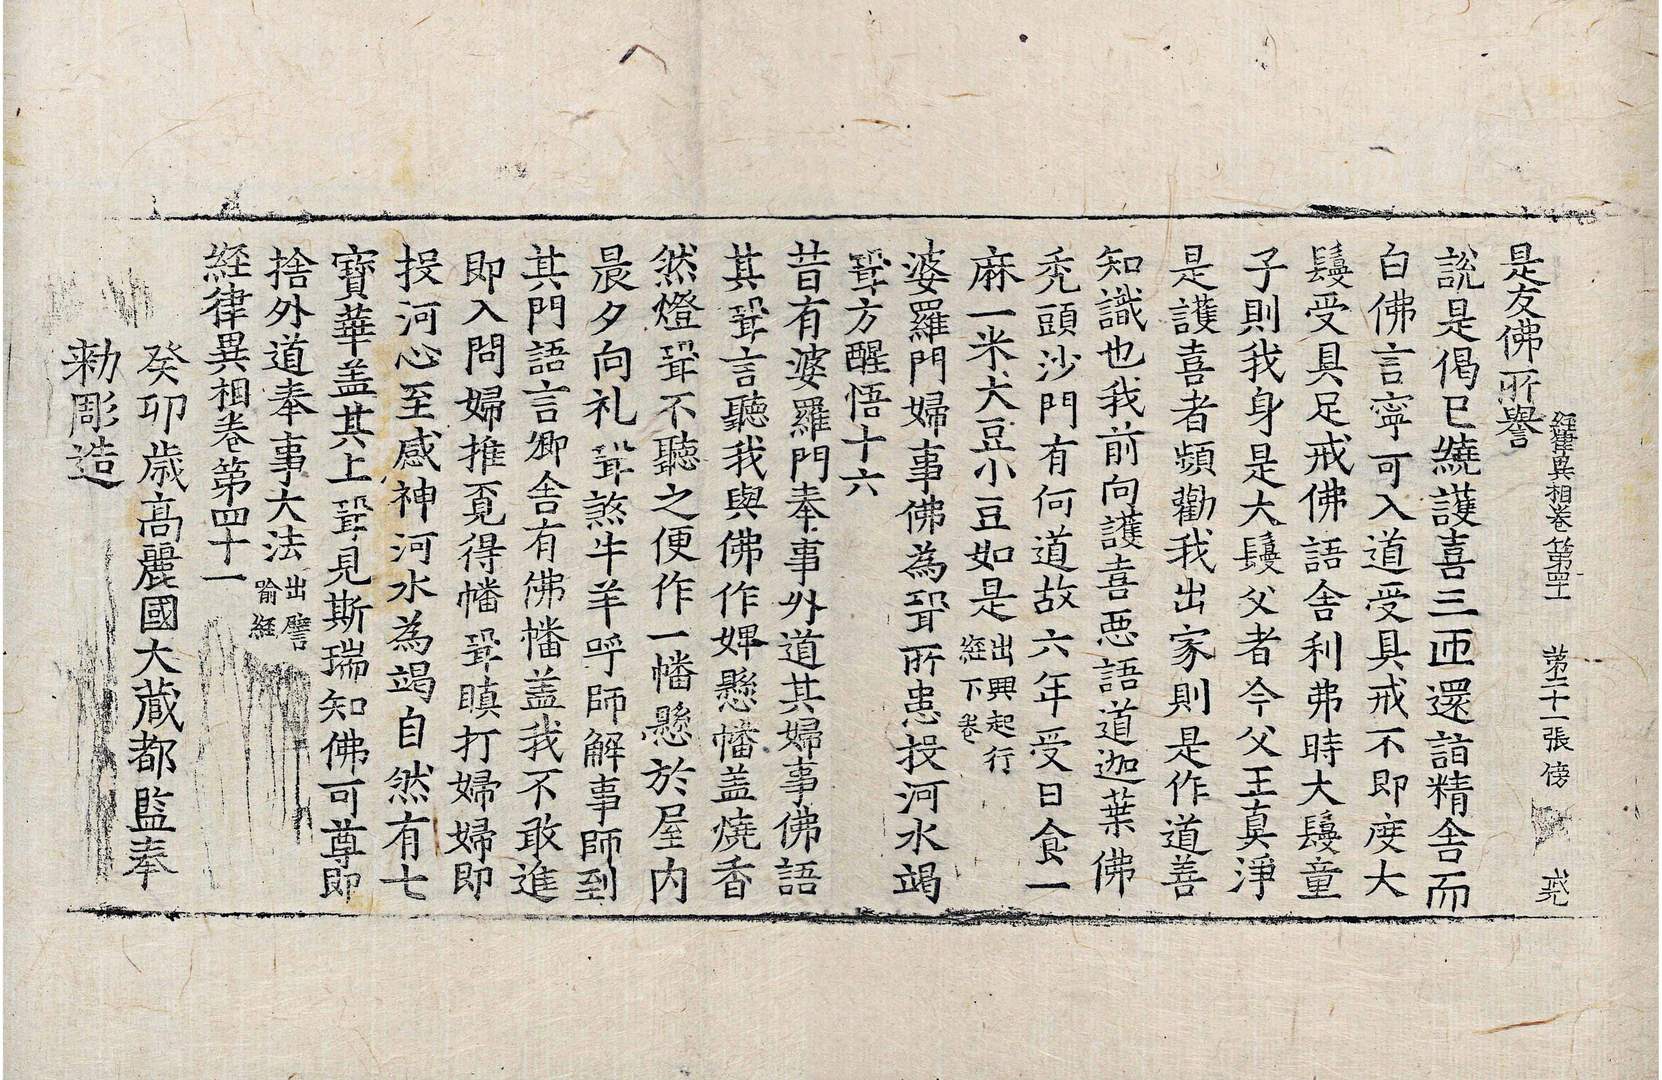 経律異相卷第四十一 第二十一張 傍
是友佛所譽
說是偈已繞護喜三匝還詣精舍而
白佛言寧可入道受具戒不即度大
鬘受具足戒佛語舍利弗時大鬘童
子則我身是大鬘父者今父王真淨
是護喜者頻勸我出家則是作道善
知識也我前向護喜惡語道迦葉佛
禿頭沙門有何道故六年受日食一
麻一米大豆小豆如是出興起行経下卷
婆羅門婦事佛為聟所患投河水竭
聟方醒悟十六
昔有婆羅門奉事外道其婦事佛語
其聟言聽我與佛作婢懸幡盖燒香
然燈聟不聽之便作一幡懸於屋内
晨夕向礼聟煞牛羊呼師解事師到
其門語言卿舍有佛幡盖我不敢進
即入問婦推覓得幡聟瞋打婦婦即
投河心至感神河水為竭自然有七
寶華盖其上聟見斯瑞知佛可尊即
捨外道奉事大法出譬喻経
経律異相卷第四十一
癸卯歲高麗國大藏都監奉
勑彫造